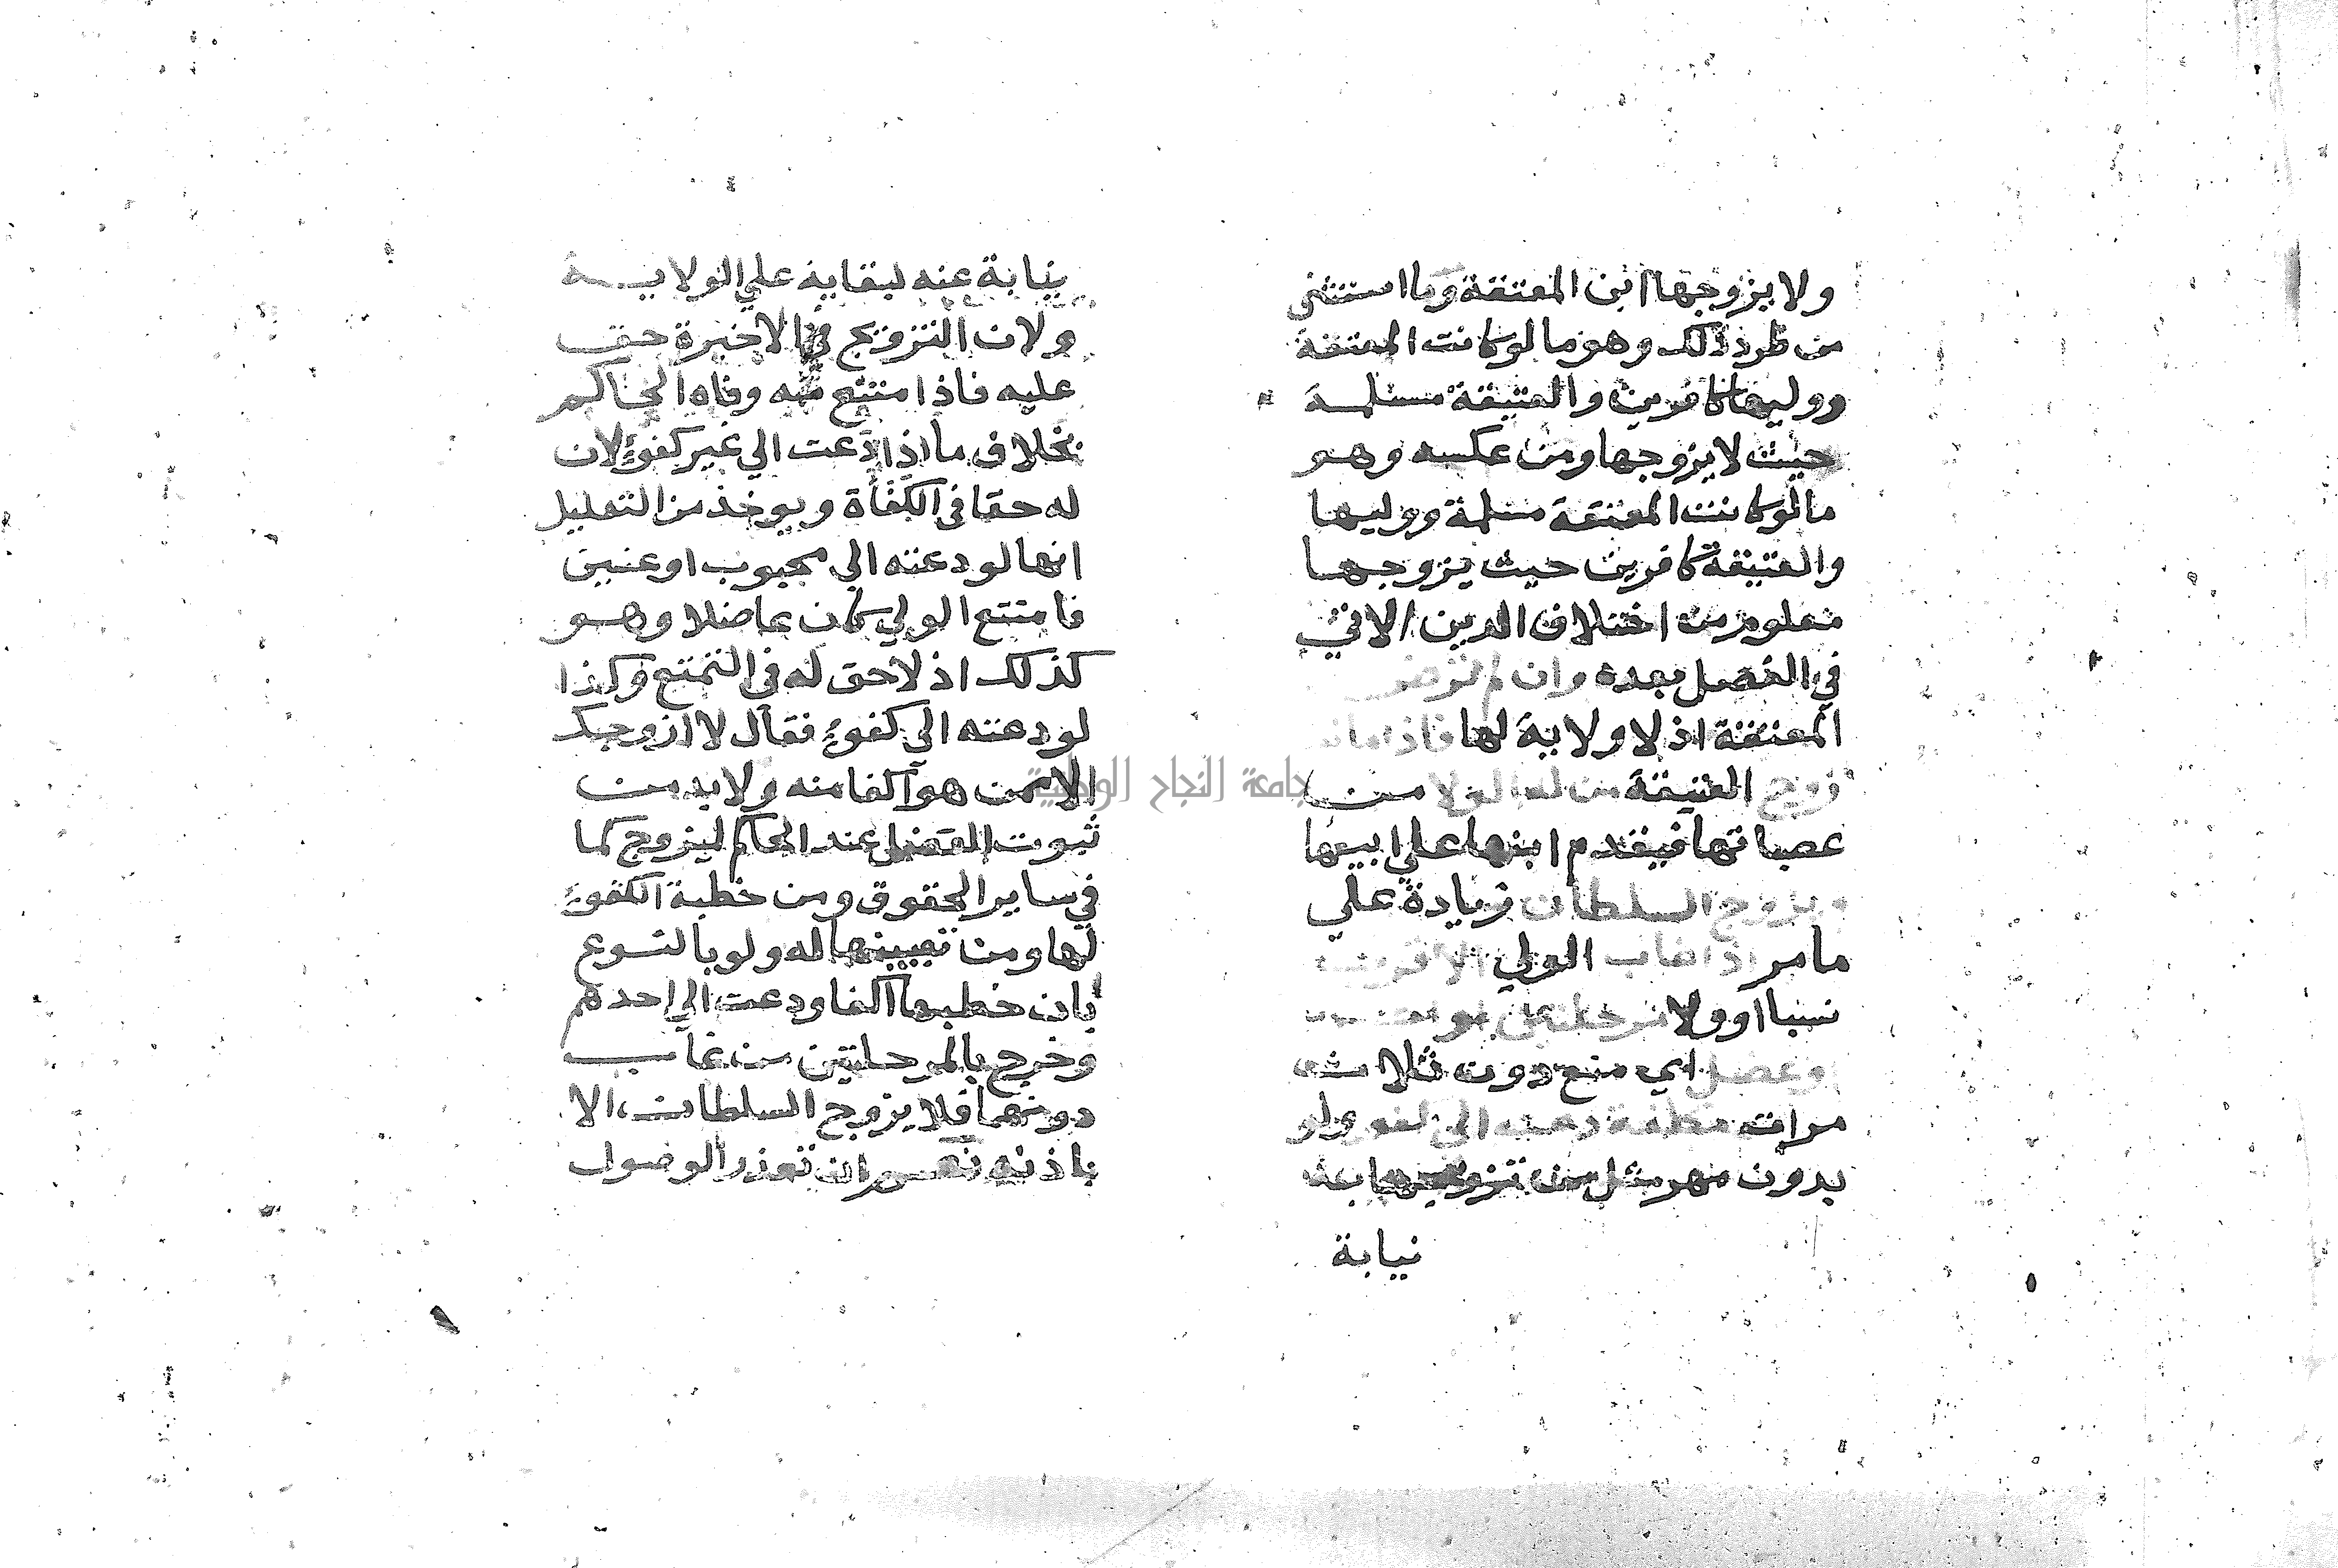 ولا يزوجها ابن المعتقة وما استثنى
من طرد ذلك وهو ما لو كانت المعتقة
ووليها كافرين والعتيقة مسلمة
حيث لا يزوجها ومن عكسه وهو
ما لو كانت المعتقة مسلمة ووليها
والعتيقة كافرين حيث يزوجها
معلوم من اختلاف الدين الاتي
في الفصل بعده وان لم ترض
المعتقة اذ لا ولاية لها فاذا ماتت
زوج العتيقة من له الولا من
عصباتها فيقدم ابنها علي ابيها
ويزوج السلطان زيادة علي
ما مر اذا غاب الولي الاقرب
نسبا او ولا مرحلتين او
او عضل اي منع دون ثلاث
مرات مكلفة دعته الي كفو ولو
بدون مهر مثل من تزويجها به
نيابة
نيابة عنه لبقايه علي الولاية
ولان التزويج في الاخيرة حق
عليه فاذا امتنع منه وفاه الحاكم
بخلاف ما اذا دعت الي غير كفؤ لان
له حقا في الكفأة ويوخذ من التعليل
انها لو دعته الي مجبوب او عنين
فامتنع الولي كان عاضلا وهو
كذلك اذ لا حق له في التمتع وكذا
لو دعته الي كفوء فقال لا ازوجك
الا ممن هو اكفا منه ولا بد من
ثبوت العضل عند الحاكم ليزوج كما
في ساير الحقوق ومن خطبة الكفوء
لها ومن تعيينها له ولو بالنوع
بان خطبها اكفا ودعت الي احدهم
وخرج بالمرحلتين من غاب
دونهما فلا يزوج السلطان الا
باذنه نعم ان تعذر الوصول
جامعة النجاح الوطنية